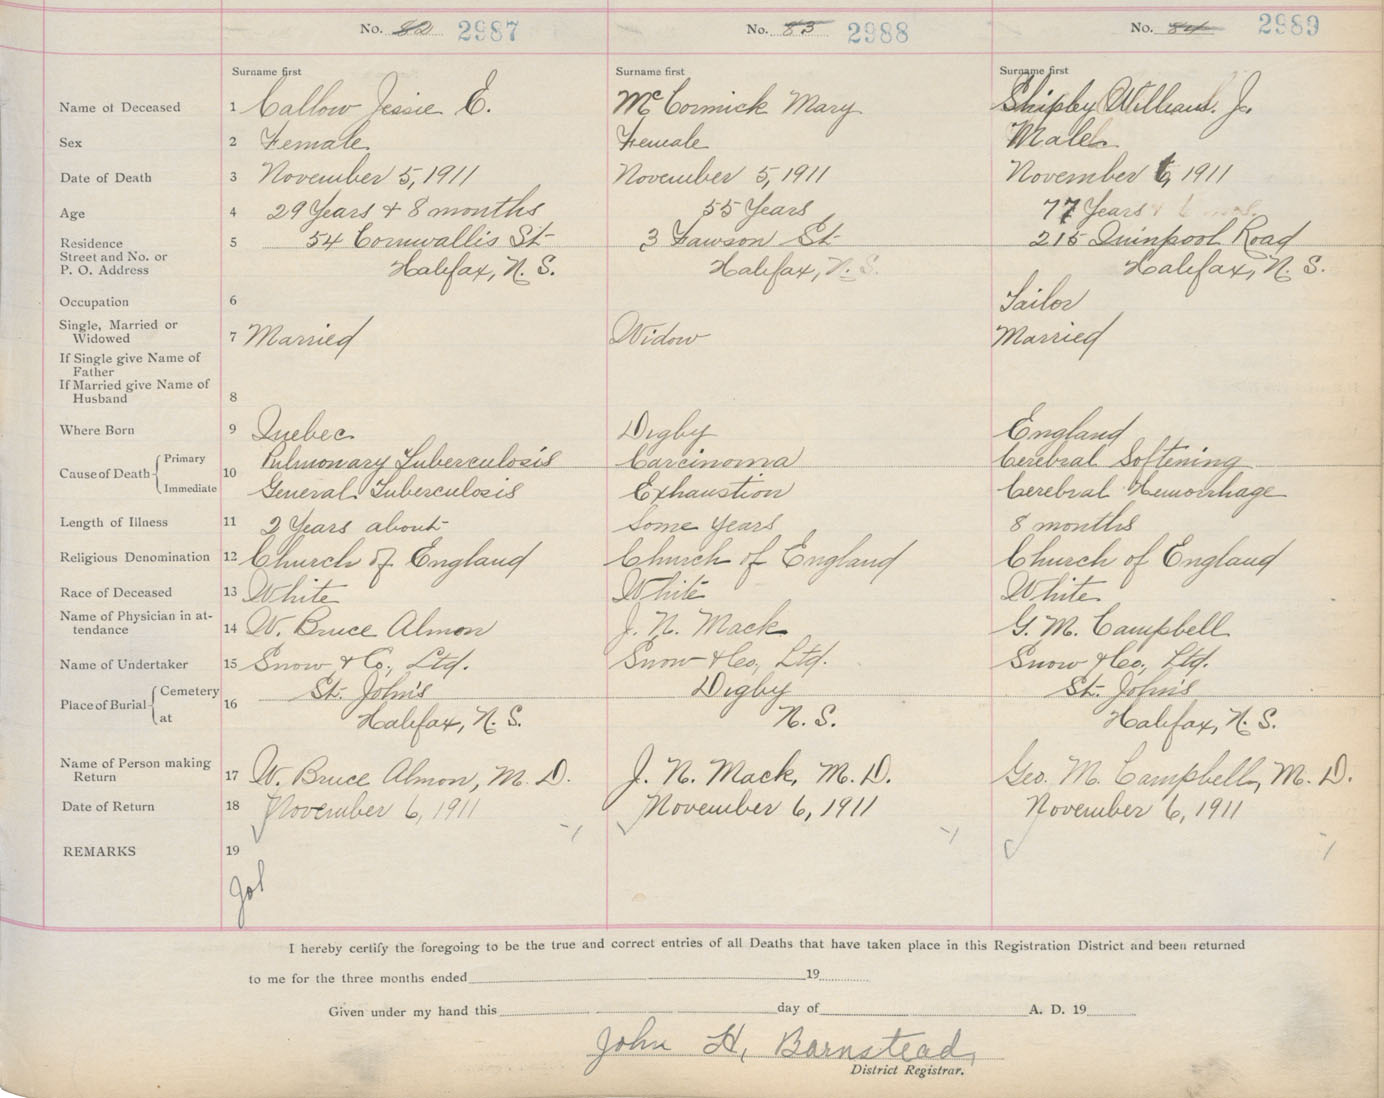 No. 82 2987 No. 83 2988 No. 84 2989
Surname first Surname first Surname first
Name of Deceased 1 Callow Jessie E. McCormick Mary Shipley William. J.
Sex 2 Female Female Male
Date of Death 3 November 5, 1911 November 5, 1911 November 6, 1911
Age 4 29 Years & 8 months 55 Years 77 Years
Residence 5 54 Cornwallis St 3 Fawson St 215 Quinpool Road
Street and No. or
P. O. Address Halifax, N. S. Halifax, N. S. Halifax, N. S.
Occupation 6 Tailor
Single, Married or
Widowed 7 Married Widow Married
If Single give Name of
Father
If Married give Name of
Husband 8
Where Born 9 Quebec Digby England
Cause of Death 10 Primary Pulmonary Tuberculosis Carcinoma Cerebral Softening
Immediate General Tuberculosis Exhaustion Cerebral Hemorrhage
Length of Illness 11 2 Years about Some years 8 months
Religious Denomination 12 Church of England Church of England Church of England
Race of Deceased 13 White White White
Name of Physician in at-
tendance 14 W. Bruce Almon J. N. Mack G. M. Campbell
Name of Undertaker 15 Snow & Co., Ltd. Snow & Co., Ltd. Snow & Co., Ltd.
Place of Burial 16 Cemetery St. John's Digby St. John's
at Halifax, N. S. N. S. Halifax, N. S.
Name of Person making
Return 17 W. Bruce Almon, M. D. J. N. Mack, M. D. Geo. M. Campbell, M. D.
Date of Return 18 November 6, 1911 November 6, 1911 November 6, 1911
REMARKS 19
I hereby certify the foregoing to be the true and correct entries of all Deaths that have taken place in this Registration District and been returned
to me for the three months ended 19
Given under my hand this day of A. D. 19
John H. Barnstead,
District Registrar.